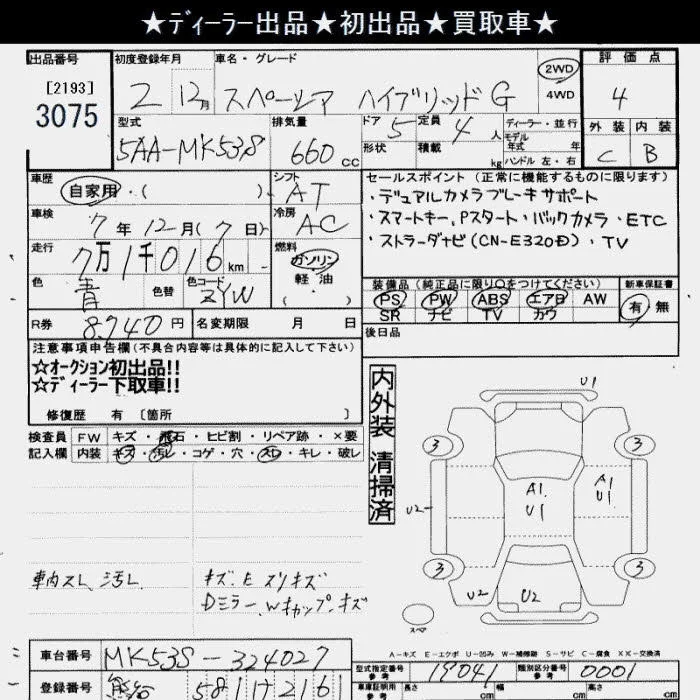 ★ディーラー出品★初出品★買取車★
出品番号 初度登録年月 車名・グレード 2WD 4WD 評価点
[2193]
3075
2 12月 スペーシア ハイブリッド G 4
型式 排気量 ドア 5 定員 4人 ディーラー・並行 外装 内装
5AA-MK53S 660cc 形状 積載 kg モデル年式 年式 ハンドル 左・右 C B
車歴 シフト セールスポイント(正常に機能するものに限ります)
自家用・( ) AT ・デュアルカメラブレーキサポート
車検 冷房 ・スマートキー, Pスタート・バックカメラ・ETC
7年12月(7日) AC ・ストラーダナビ(CN-E320D)・TV
走行 燃料
7万1千016km ガソリン
軽油
( )
色 色替 色コード 装備品(純正品に限り○をつけてください) 新車保証書
青 ZYW PS PW ABS エアB AW 有・無
SR ナビ TV カワ
R券 8,940円 名変期限 月 日 後日品
注意事項申告欄(不具合内容等は具体的に記入して下さい)
☆オークション初出品!!
☆ディーラー下取車!!
修復歴 有 [箇所 ]
内外装 清掃済
検査員 FW キズ・飛石・ヒビ割・リペア跡・×要
記入欄 内装 キズ・汚レ・コゲ・穴・スレ・キレ・破レ
U1
3 3
A1 U1
A1 U1
U2
3 3
U2 U2
スペア
車内スレ、汚レ キズ・E スリキズ
Dミラー、Wキャップ、キズ
A-キズ E-エクボ U-凹み W-補修跡 S-サビ C-腐食 XX-交換済
車台番号 MK53S-324027
型式指定番号 参考 19041 類別区分番号 参考 0001
登録番号 581 2161
車庫証明用 参考 長さ cm 幅 cm 高さ cm